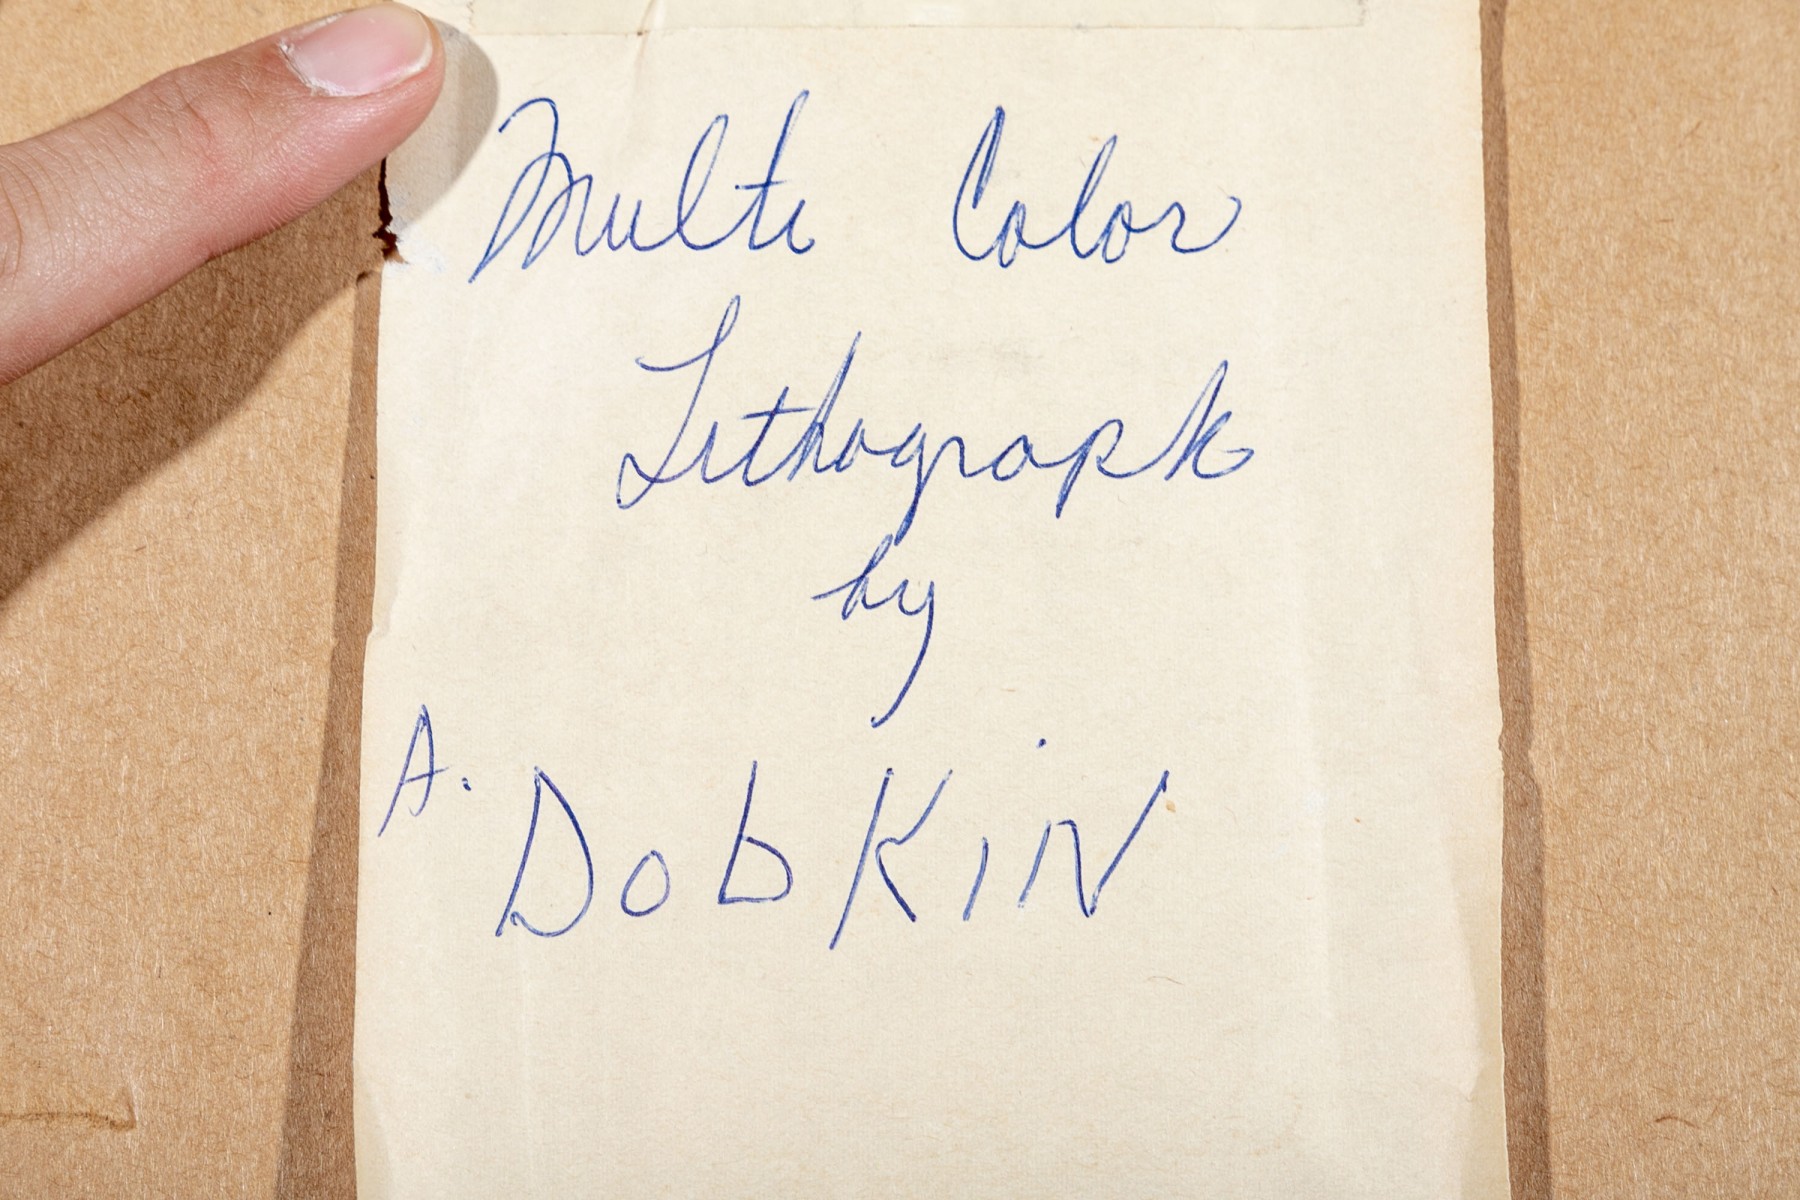 Multi Color
Lithograph
by
A. DobKiN